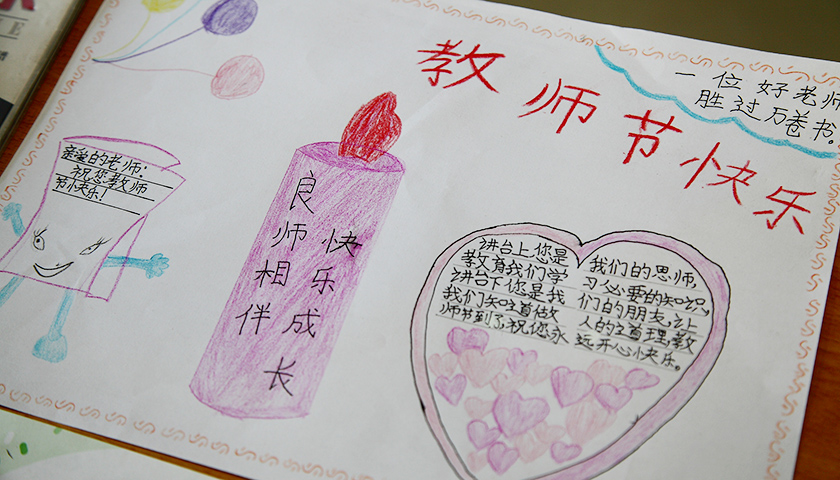 教师节快乐
一位好老师
胜过万卷书。
亲爱的老师:
祝您教师
节快乐!
良师相伴
快乐成长
讲台上,您是我们的恩师,
教育我们学习必要的知识,
讲台下您是我们的朋友,让
我们知道做人的道理,教
师节到了祝您永远开心快乐。